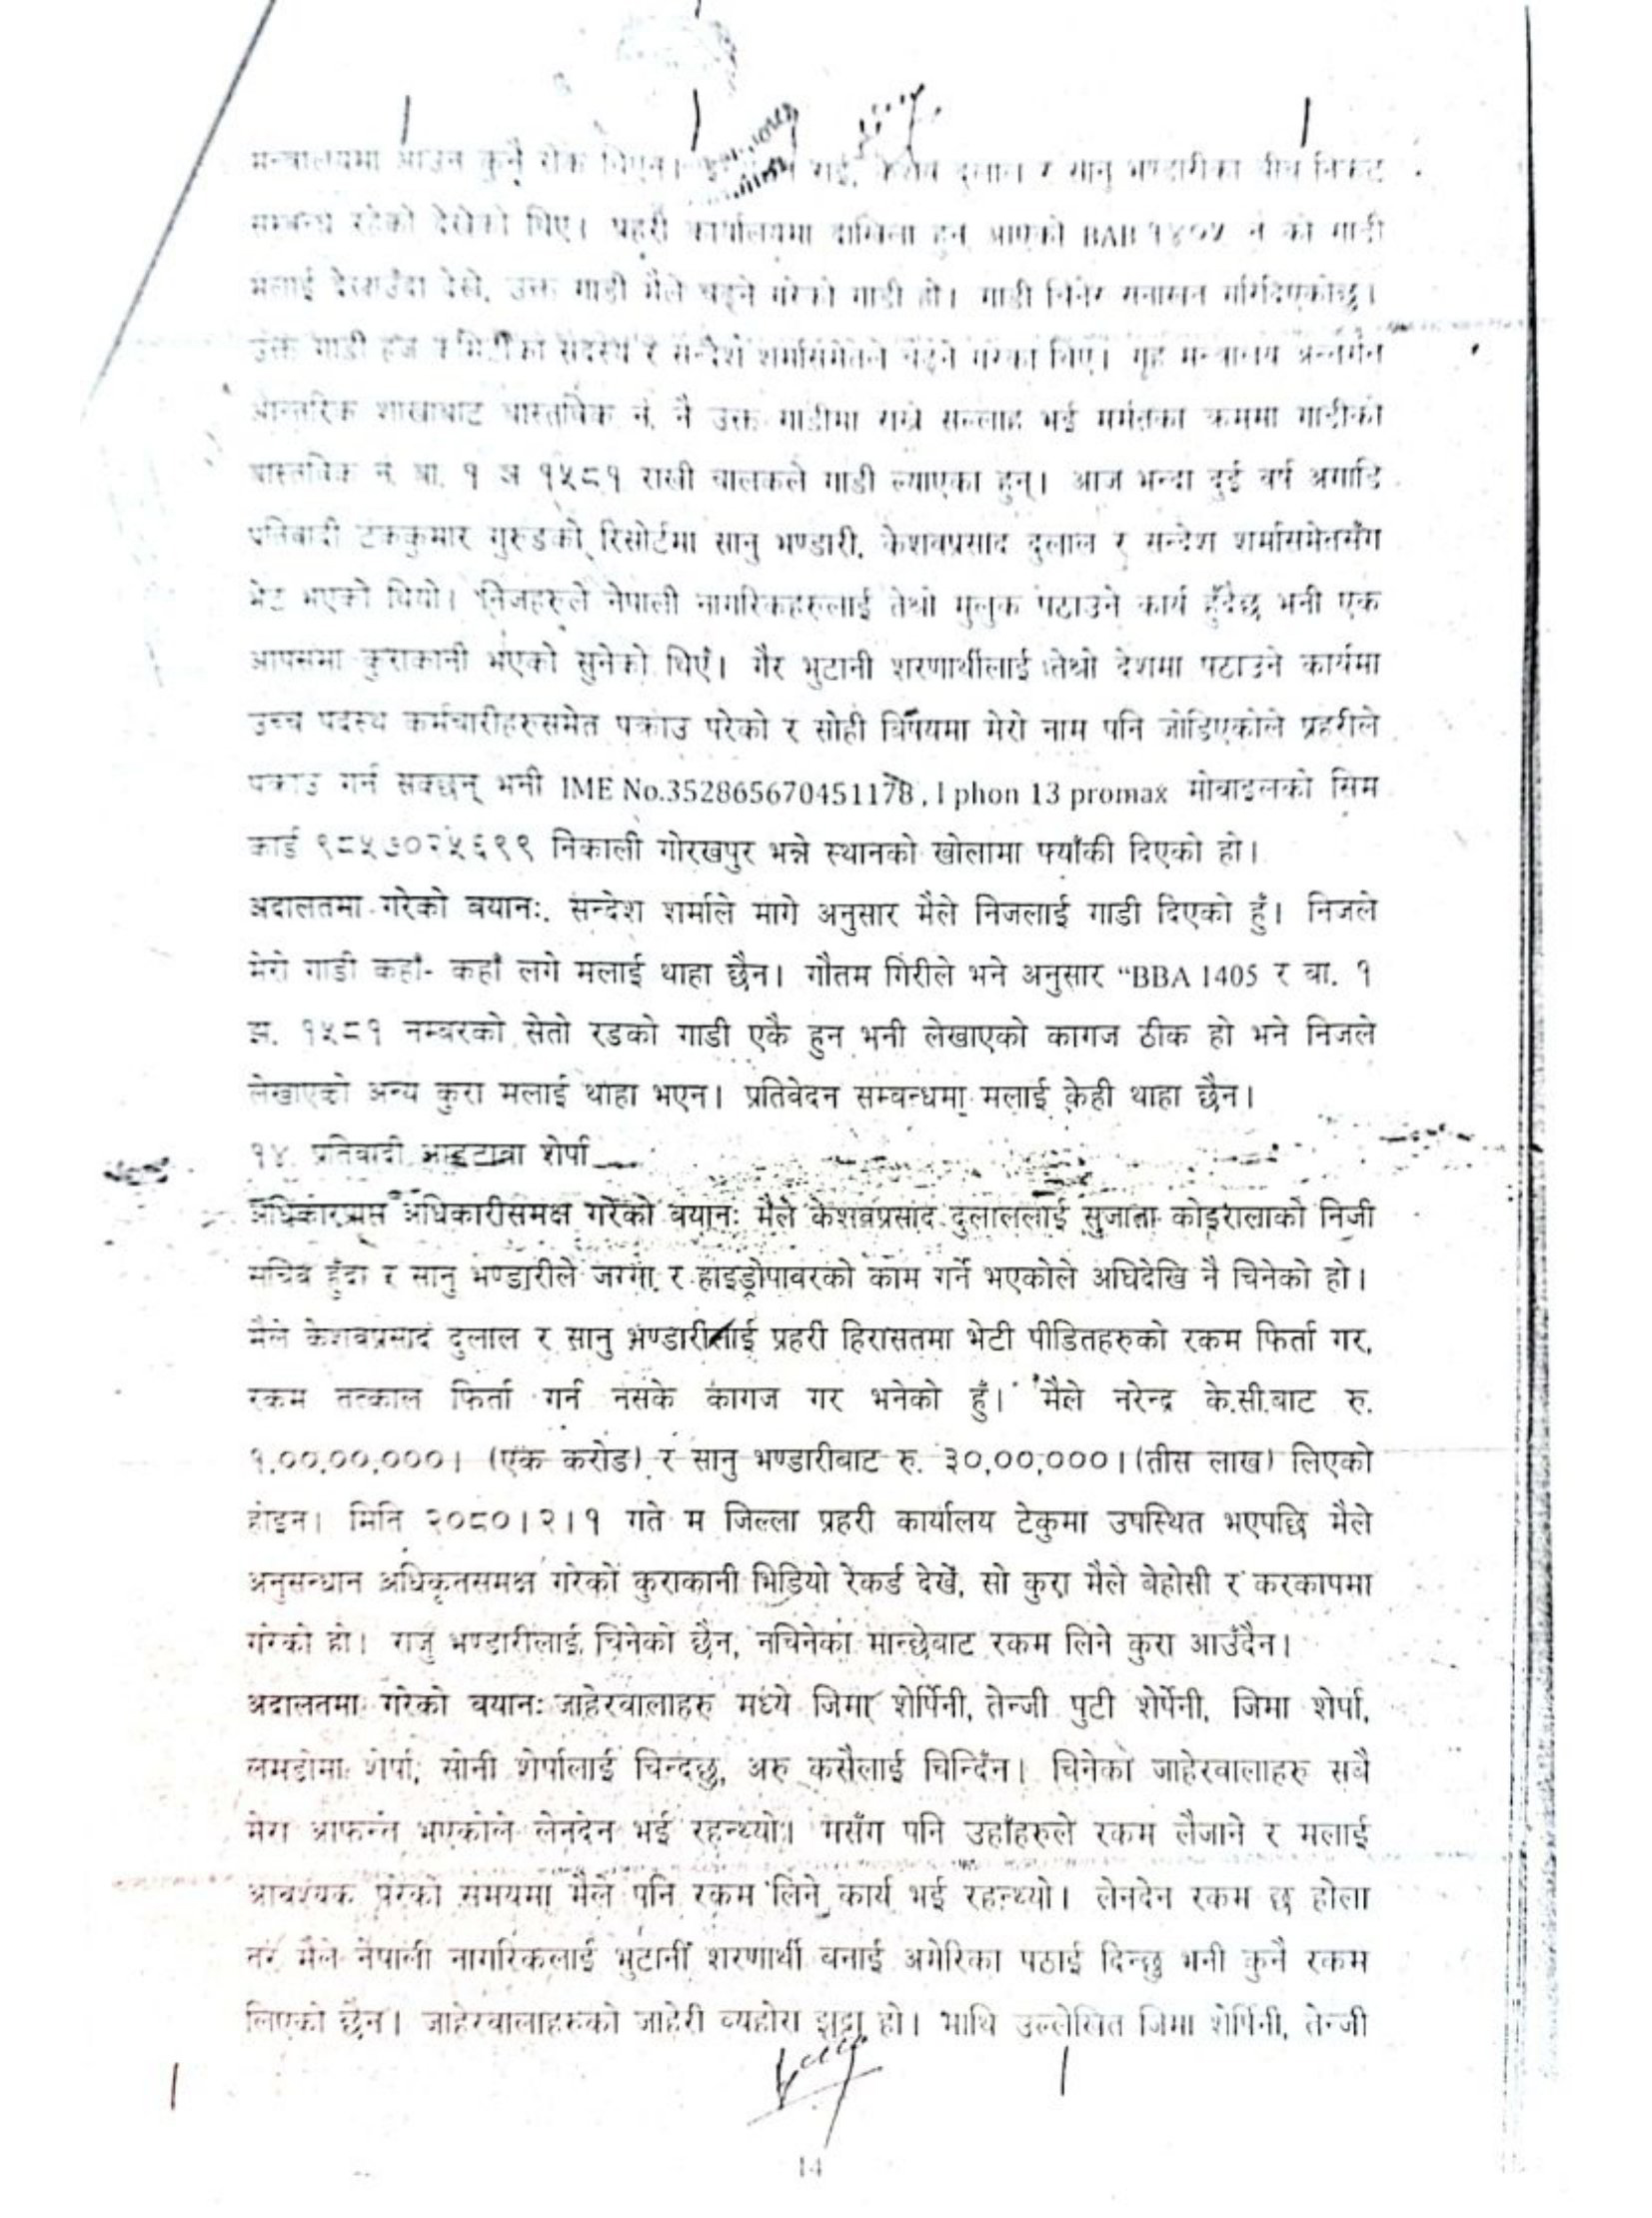 मन्त्रालयमा आउन कुनै रोक थिएन। राई, केशव दुलाल र सानु भण्डारीका बीच निकट
सम्बन्ध रहेको देखेको थिए। प्रहरी कार्यालयमा दाखिला हुन आएको BAB १४०५ नं को गाडी
मलाई देखाउँदा देखे, उक्त गाडी मैले चढ्ने गरेको गाडी हो। गाडी चिनेर सनाखत गरिदिएकोछु।
उक्त गाडी हज कमिटीका सदस्य र सन्देश शर्मासमेतले चढ्ने गरेका थिए। गृह मन्त्रालय अन्तर्गत
आन्तरिक शाखाबाट वास्तविक नं. नै उक्त गाडीमा राख्ने सल्लाह भई मर्मतका क्रममा गाडीको
वास्तविक नं. बा. १ झ १५८१ राखी चालकले गाडी ल्याएका हुन्। आज भन्दा दुई वर्ष अगाडि
प्रतिवादी टंककुमार गुरुङको रिसोर्टमा सानु भण्डारी, केशवप्रसाद दुलाल र सन्देश शर्मासमेतसँग
भेट भएको थियो। निजहरुले नेपाली नागरिकहरुलाई तेश्रो मुलुक पठाउने कार्य हुँदैछ भनी एक
आपसमा कुराकानी भएको सुनेको थिएँ। गैर भुटानी शरणार्थीलाई तेश्रो देशमा पठाउने कार्यमा
उच्च पदस्थ कर्मचारीहरुसमेत पक्राउ परेको र सोही विषयमा मेरो नाम पनि जोडिएकोले प्रहरीले
पक्राउ गर्न सक्छन् भनी IME No.352865670451178, I phon 13 promax मोबाइलको सिम
कार्ड ९८५७०२५६९९ निकाली गोरखपुर भन्ने स्थानको खोलामा फ्याँकी दिएको हो।
अदालतमा गरेको बयानः सन्देश शर्माले मागे अनुसार मैले निजलाई गाडी दिएको हुँ। निजले
मेरो गाडी कहाँ- कहाँ लगे मलाई थाहा छैन। गौतम गिरीले भने अनुसार "BBA 1405 र बा. १
झ. १५८१ नम्बरको सेतो रङको गाडी एकै हुन भनी लेखाएको कागज ठीक हो भने निजले
लेखाएको अन्य कुरा मलाई थाहा भएन। प्रतिवेदन सम्बन्धमा मलाई केही थाहा छैन।
१४. प्रतिवादी आङटावा शेर्पा
अधिकारप्राप्त अधिकारीसमक्ष गरेको बयानः मैले केशवप्रसाद दुलाललाई सुजाता कोइरालाको निजी
सचिव हुँदा र सानु भण्डारीले जग्गा र हाइड्रोपावरको काम गर्ने भएकोले अघिदेखि नै चिनेको हो।
मैले केशवप्रसाद दुलाल र सानु भण्डारीलाई प्रहरी हिरासतमा भेटी पीडितहरुको रकम फिर्ता गर,
रकम तत्काल फिर्ता गर्न नसके कागज गर भनेको हुँ। मैले नरेन्द्र के.सी.बाट रु.
१,००,००,०००। (एक करोड) र सानु भण्डारीबाट रु. ३०,००,०००।(तीस लाख) लिएको
होइन। मिति २०८०।२।१ गते म जिल्ला प्रहरी कार्यालय टेकुमा उपस्थित भएपछि मैले
अनुसन्धान अधिकृतसमक्ष गरेको कुराकानी भिडियो रेकर्ड देखें, सो कुरा मैले बेहोसी र करकापमा
गरेको हो। राजु भण्डारीलाई चिनेको छैन, नचिनेका मान्छेबाट रकम लिने कुरा आउँदैन।
अदालतमा गरेको बयानः जाहेरवालाहरु मध्ये जिमा शेर्पिनी, तेन्जी पुटी शेर्पेनी, जिमा शेर्पा,
लमडोमा शेर्पा, सोनी शेर्पालाई चिन्दछु, अरु कसैलाई चिन्दिन। चिनेको जाहेरवालाहरु सबै
मेरा आफन्त भएकोले लेनदेन भई रहन्थ्यो। मसँग पनि उहाँहरुले रकम लैजाने र मलाई
आवश्यक परेको समयमा मैले पनि रकम लिने कार्य भई रहन्थ्यो। लेनदेन रकम छ होला
तर मैले नेपाली नागरिकलाई भुटानी शरणार्थी बनाई अमेरिका पठाई दिन्छु भनी कुनै रकम
लिएको छैन। जाहेरवालाहरुको जाहेरी व्यहोरा झुट्टा हो। माथि उल्लेखित जिमा शेर्पिनी, तेन्जी
14